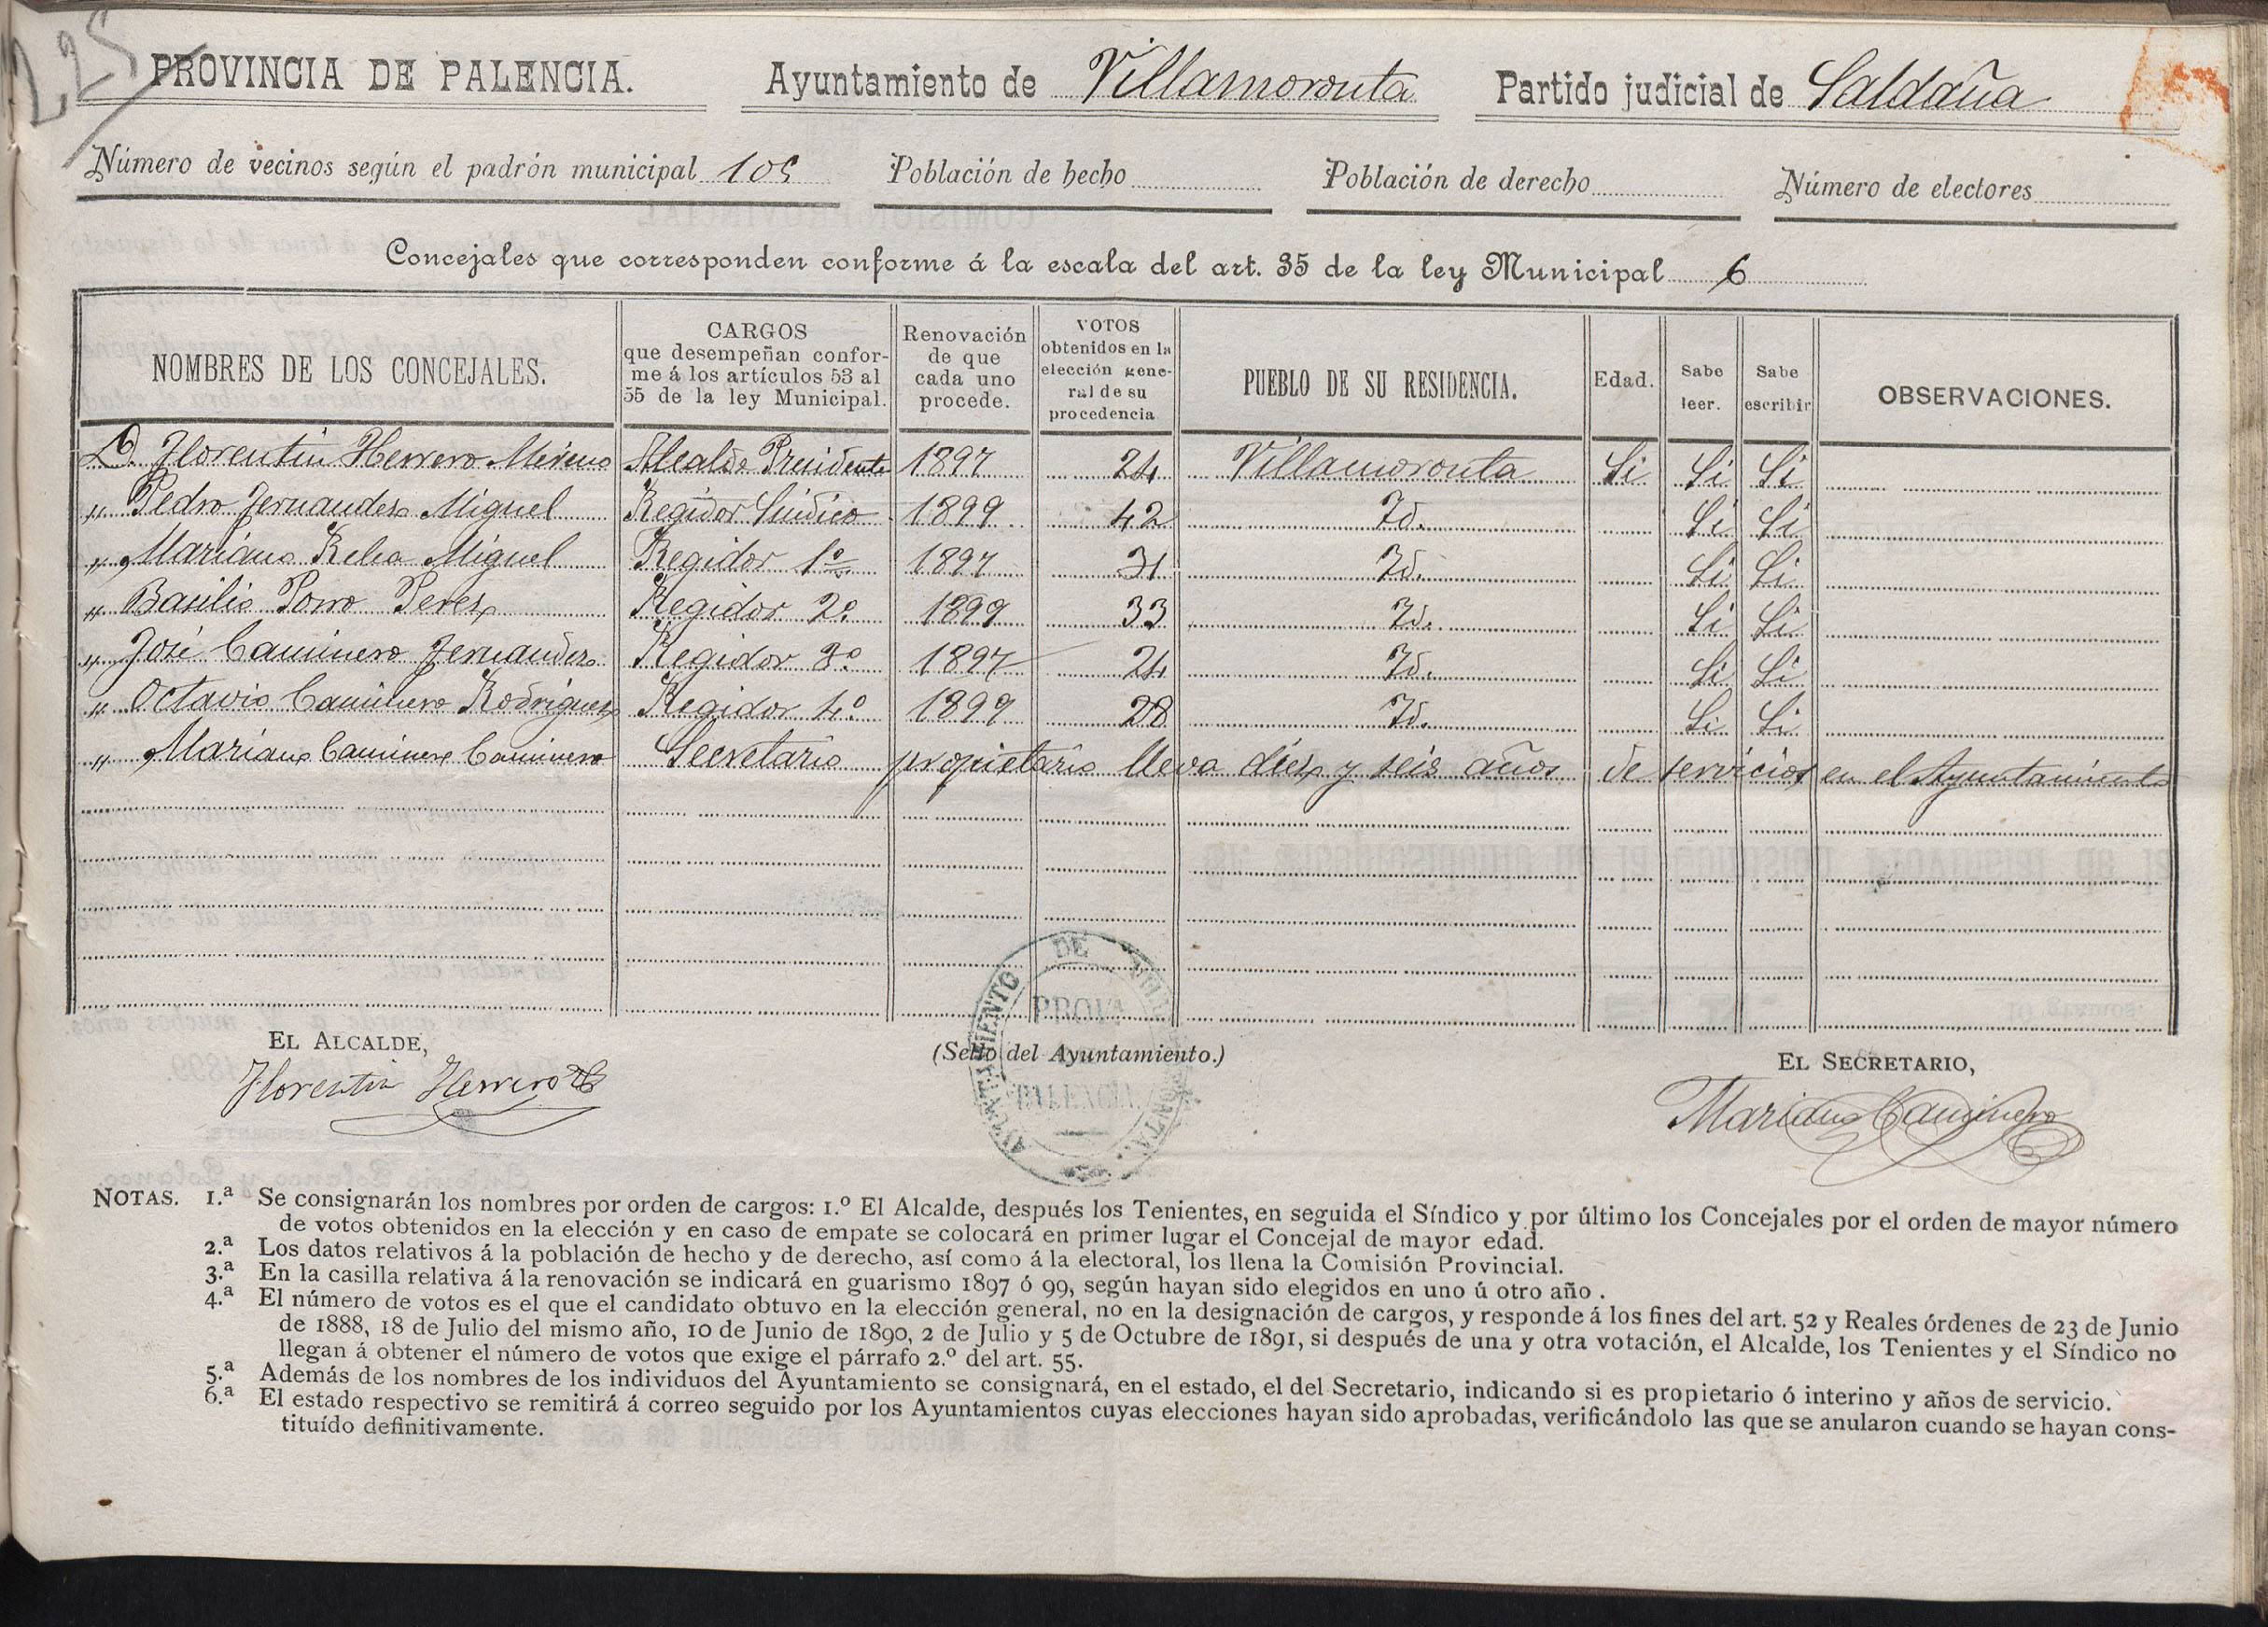 225
PROVINCIA DE PALENCIA. Ayuntamiento de Villamoronta Partido judicial de Saldaña
Número de vecinos según el padrón municipal 105 Población de hecho Población de derecho Número de electores
Concejales que corresponden conforme á la escala del art. 35 de la ley Municipal 6
NOMBRES DE LOS CONCEJALES. CARGOS que desempeñan confor-me á los artículos 53 al 55 de la ley Municipal. Renovación de que cada uno procede. VOTOS obtenidos en la elección gene-ral de su procedencia PUEBLO DE SU RESIDENCIA. Edad. Sabe leer. Sabe escribir OBSERVACIONES.
D. Florentin Herrero Merino Alcalde Presidente 1897 24 Villamoronta Si Si Si
" Pedro Fernandez Miguel Regidor Sindico 1899 42 Id. Si Si
" Mariano Relea Miguel Regidor 1º 1897 31 Id. Si Si
" Basilio Porro Perez Regidor 2º 1899 33 Id. Si Si
" José Caminero Fernandez Regidor 3º 1897 24 Id. Si Si
" Octavio Caminero Rodriguez Regidor 4º 1899 28 Id. Si Si
" Mariano Caminero Caminero Secretario propietario lleva diez y seis años de servicios en el Ayuntamiento
EL ALCALDE,
Florentin Herrero
(Sello del Ayuntamiento.)
AYUNTAMIENTO DE
PROVA
PALENCIA
EL SECRETARIO,
Mariano Caminero
NOTAS. 1.ª Se consignarán los nombres por orden de cargos: 1.º El Alcalde, después los Tenientes, en seguida el Síndico y por último los Concejales por el orden de mayor número
de votos obtenidos en la elección y en caso de empate se colocará en primer lugar el Concejal de mayor edad.
2.ª Los datos relativos á la población de hecho y de derecho, así como á la electoral, los llena la Comisión Provincial.
3.ª En la casilla relativa á la renovación se indicará en guarismo 1897 ó 99, según hayan sido elegidos en uno ú otro año .
4.ª El número de votos es el que el candidato obtuvo en la elección general, no en la designación de cargos, y responde á los fines del art. 52 y Reales órdenes de 23 de Junio
de 1888, 18 de Julio del mismo año, 10 de Junio de 1890, 2 de Julio y 5 de Octubre de 1891, si después de una y otra votación, el Alcalde, los Tenientes y el Síndico no
llegan á obtener el número de votos que exige el párrafo 2.º del art. 55.
5.ª Además de los nombres de los individuos del Ayuntamiento se consignará, en el estado, el del Secretario, indicando si es propietario ó interino y años de servicio.
6.ª El estado respectivo se remitirá á correo seguido por los Ayuntamientos cuyas elecciones hayan sido aprobadas, verificándolo las que se anularon cuando se hayan cons-
tituído definitivamente.